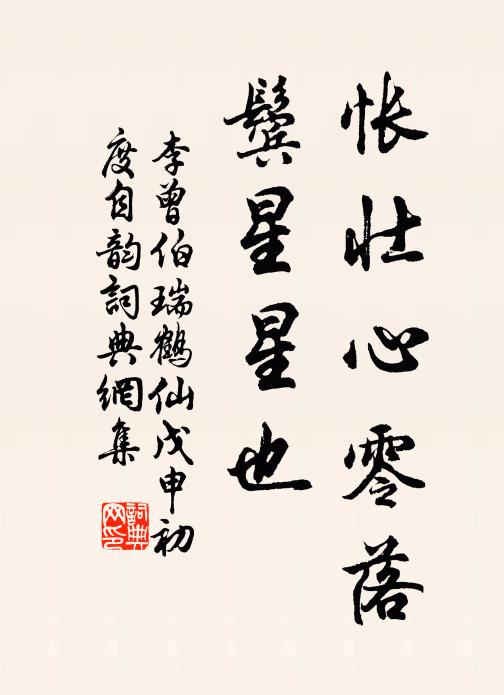 怅壮心零落
鬓星星也
李曾伯瑞鹤仙戊申初
度自韵词典網集
詞典
网印